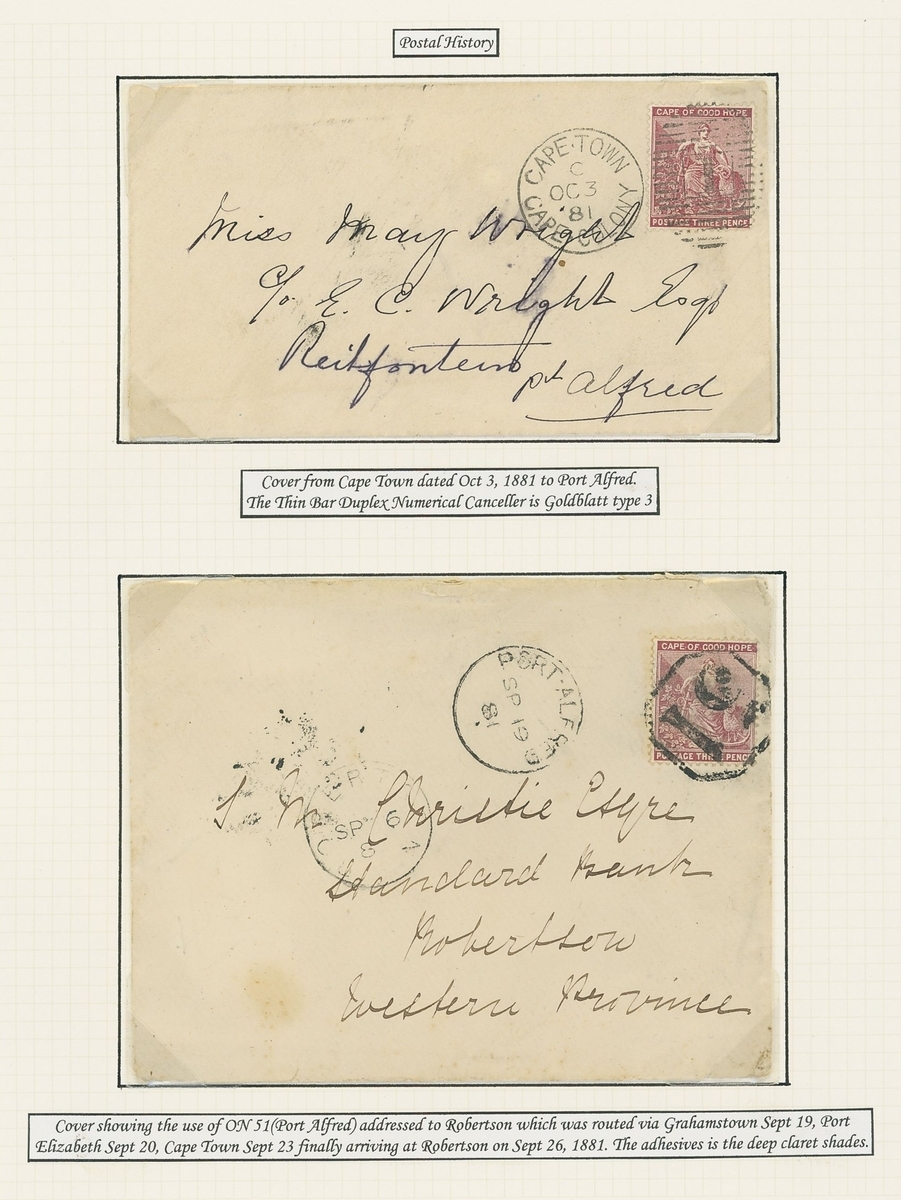 Postal History
CAPE OF GOOD HOPE
POSTAGE THREE PENCE
CAPE·TOWN
C
OC 3
'81
CAPE COLONY
Miss May Wright
c/o E. C. Wright Esqr
Reitfontein
pt Alfred
Cover from Cape Town dated Oct 3, 1881 to Port Alfred.
The Thin Bar Duplex Numerical Canceller is Goldblatt type 3
CAPE OF GOOD HOPE
POSTAGE THREE PENCE
PORT·ALFRED
SP 19
81
SP 6
8
Christie Esqre
Standard Bank
Robertson
Western Province
Cover showing the use of ON 51(Port Alfred) addressed to Robertson which was routed via Grahamstown Sept 19, Port
Elizabeth Sept 20, Cape Town Sept 23 finally arriving at Robertson on Sept 26, 1881. The adhesives is the deep claret shades.